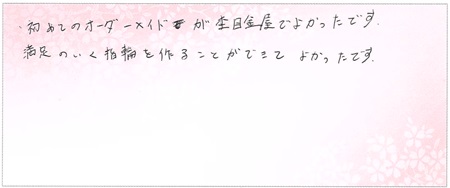 ・初めてのオーダーメイドが杢目金屋でよかったです。
満足のいく指輪を作ることができてよかったです。